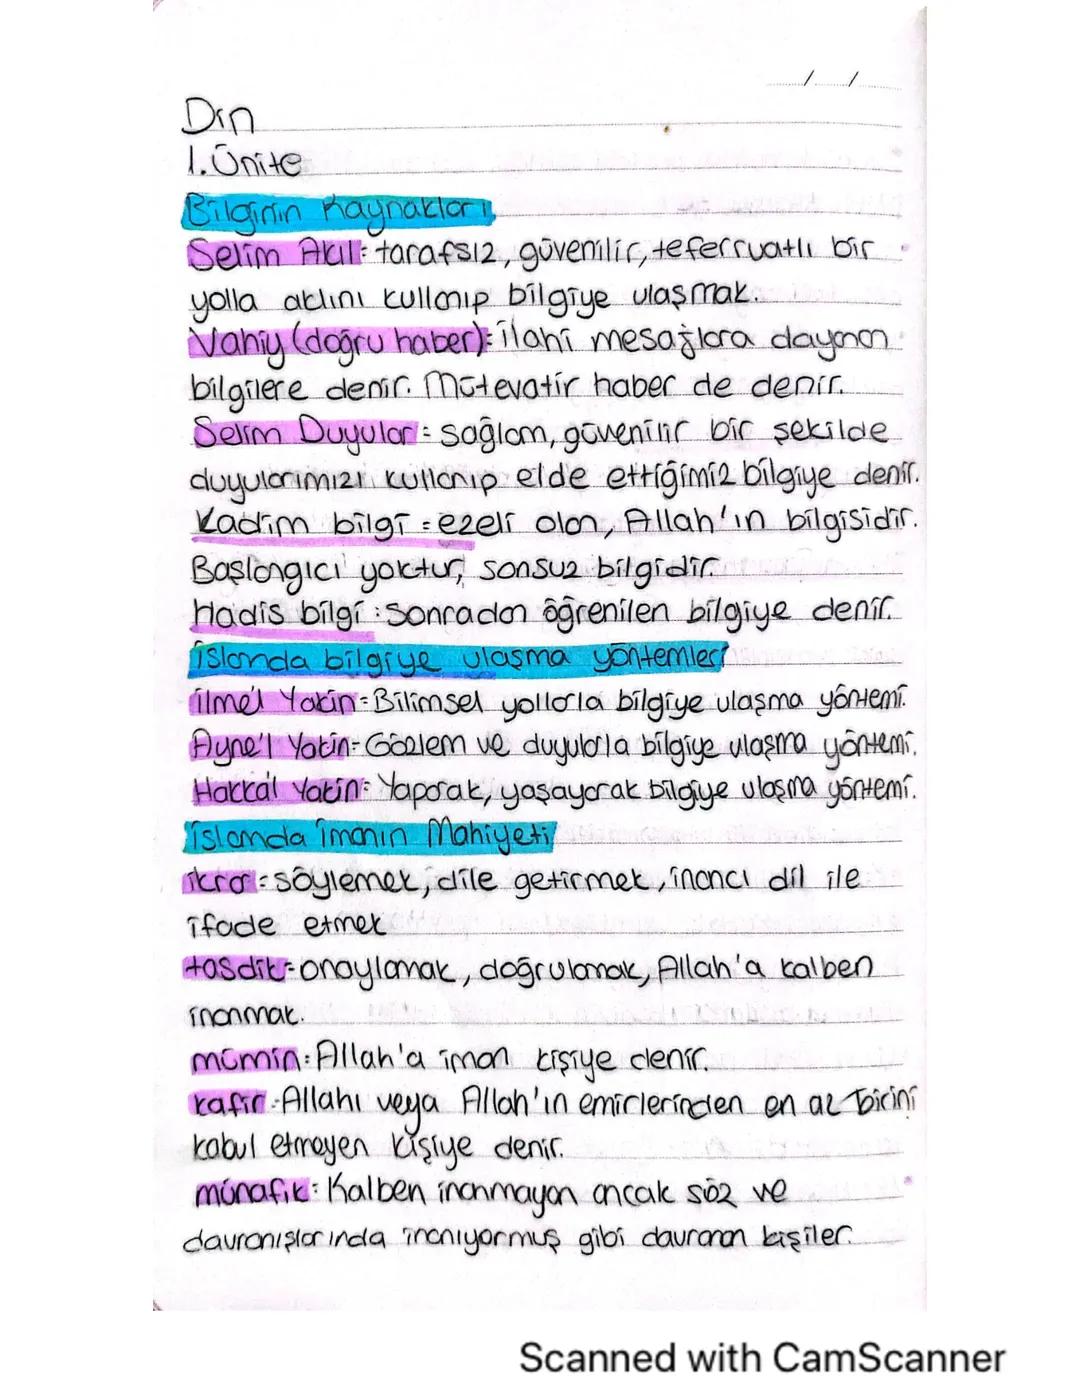 / /
Din
1. Ünite
Bilginin Kaynakları
Selim Akıl: tarafsız, güvenilir, teferruatlı bir
yolla aklını kullanıp bilgiye ulaşmak.
Vahiy (doğru haber): İlahi mesajlara dayanan
bilgilere denir. Mütevatir haber de denir.
Selim Duyular: Sağlam, güvenilir bir şekilde
duyularımızı kullanıp elde ettiğimiz bilgiye denir.
Kadim bilgi: ezeli olan, Allah'ın bilgisidir.
Başlangıcı yoktur, sonsuz bilgidir.
Hadis bilgi: Sonradan öğrenilen bilgiye denir.
İslamda bilgiye ulaşma yöntemleri
ilme'l Yakin= Bilimsel yollarla bilgiye ulaşma yöntemi.
Ayne'l Yakin= Gözlem ve duyularla bilgiye ulaşma yöntemi.
Hakka'l Yakin= Yaparak, yaşayarak bilgiye ulaşma yöntemi.
İslamda İmanın Mahiyeti
ikrar= söylemek, dile getirmek, inancı dil ile
ifade etmek
tasdik= onaylamak, doğrulamak, Allah'a kalben
inanmak.
mümin: Allah'a iman kişiye denir.
kafir: Allahı veya Allah'ın emirlerinden en az birini
kabul etmeyen kişiye denir.
münafık: Kalben inanmayan ancak söz ve
davranışlarında inanıyormuş gibi davranan kişiler.
Scanned with CamScanner